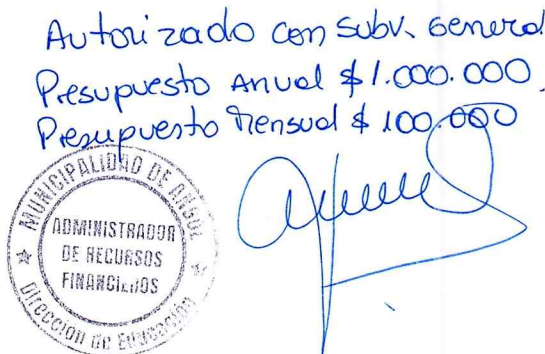 Autorizado con subv. General
Presupuesto Anual $1.000.000.
Presupuesto Mensual $100.000
MUNICIPALIDAD DE ANGOL
ADMINISTRADOR
DE RECURSOS
FINANCIEROS
Dirección de Educación